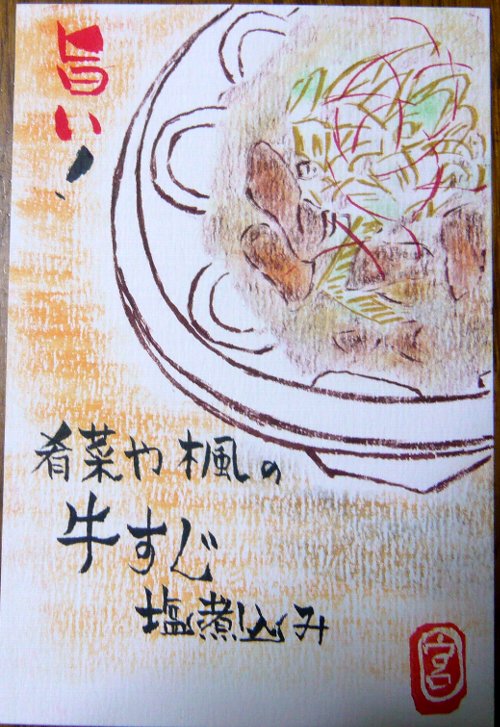 旨い!
肴菜や楓の
牛すじ
塩煮込み
宮